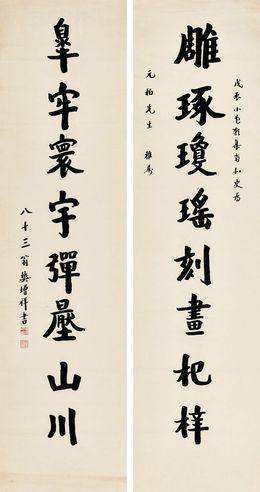 戊辰小
史為
雕琢瓊瑤刻畫杞梓
元柏先生 雅屬
皋牢寰宇彈壓山川
八十三翁樊增祥書